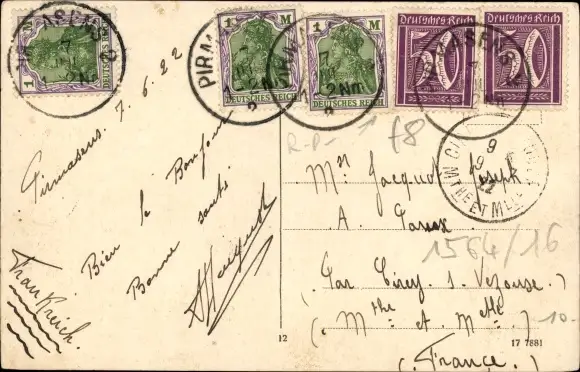 1 M
DEUTSCHES REICH
1 M
DEUTSCHES REICH
1 M
DEUTSCHES REICH
Deutsches Reich
50
Deutsches Reich
50
PIRMASENS
Pirmasens. 7. 6. 22
Bien le Bonjour
Bonne santé
Jacquot
Frankreich.
R-P- 1 f8
Mr Jacquot Joseph
A
1564/16
(Par Cirey s. Vezouse.)
(Mthe et Mlle)
(France.)
10-
12
17 7881